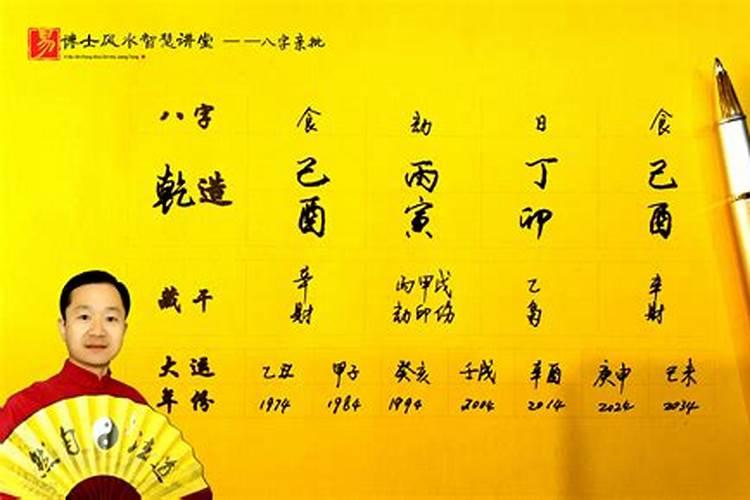 易 谦士风水智慧讲堂 ——八字亲批
八字 食 劫 日 食
乾造 己 丙 丁 己
酉 寅 卯 酉
藏干 辛 丙甲戊 乙 辛
财 劫印伤 枭 财
大运 乙丑 甲子 癸亥 壬戌 辛酉 庚申 己未
年份 1974 1984 1994 2004 2014 2024 2034
然自☯法道